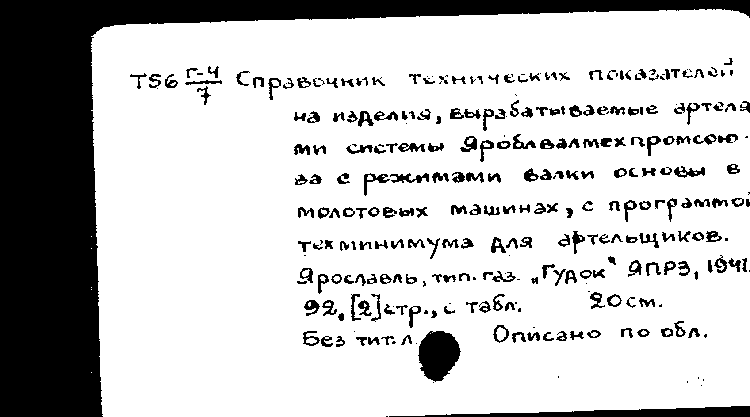 TS6 Г-4/7 Справочник технических показателей
на изделия, вырабатываемые артеля
ми системы Яроблвалмехпромсою-
за с режимами валки основы в
молотовых машинах, с программой
техминимума для артельщиков.
Ярославль, тип. газ. „Гудок" ЯПРЗ, 1941.
92, [2] стр., с табл. 20 см.
Без тит. л. Описано по обл.